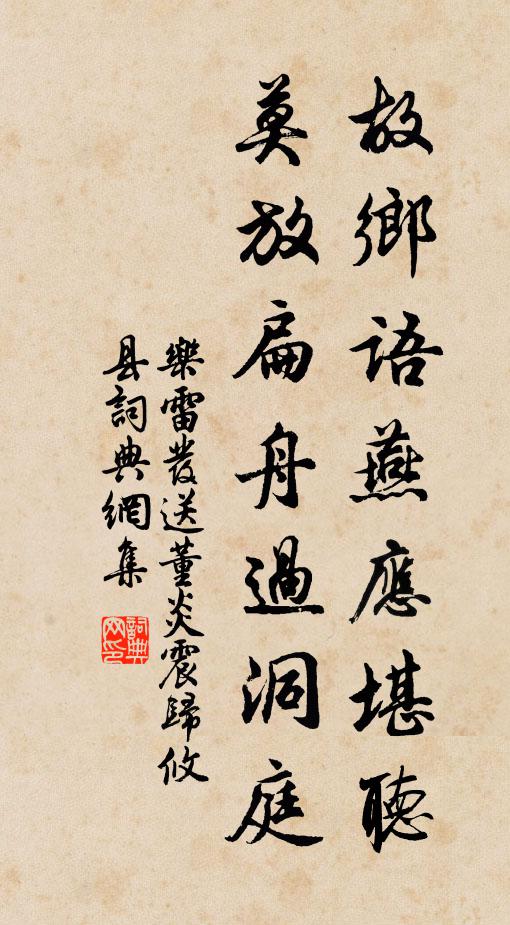 故鄉語燕應堪聽
莫放扁舟過洞庭
樂雷發送董炎震歸攸
县詞典網集
詞典網印